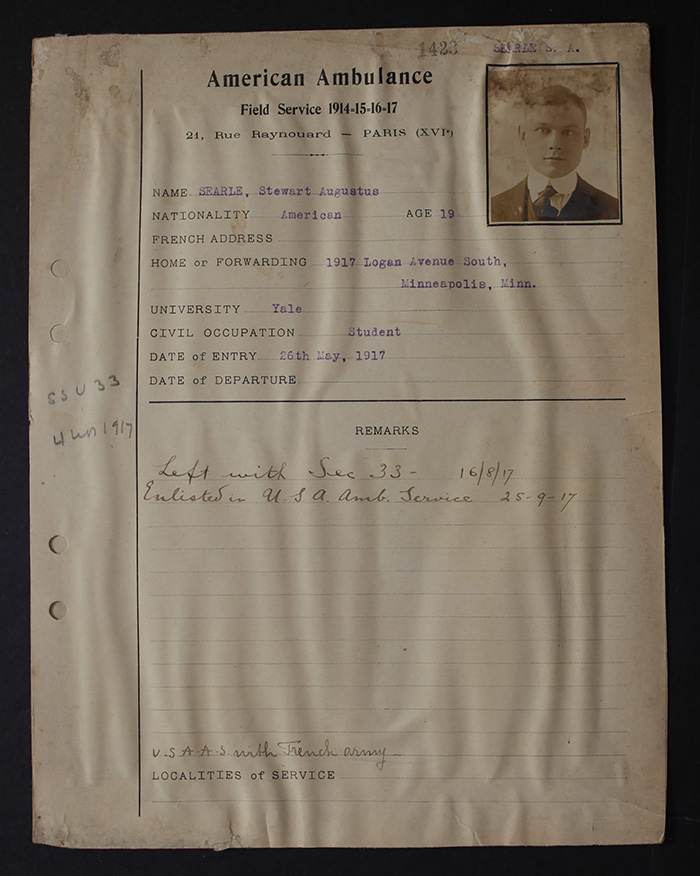 1423 SEARLE S. A.
American Ambulance
Field Service 1914-15-16-17
21, Rue Raynouard — PARIS (XVIe)
NAME SEARLE, Stewart Augustus
NATIONALITY American AGE 19
FRENCH ADDRESS
HOME or FORWARDING 1917 Logan Avenue South,
Minneapolis, Minn.
UNIVERSITY Yale
CIVIL OCCUPATION Student
DATE of ENTRY 26th May, 1917
DATE of DEPARTURE
SSU 33
1917
REMARKS
Left with Sec 33 - 16/8/17
Enlisted in U.S A. Amb. Service 25-9-17
U-S-A-A-S with French army
LOCALITIES of SERVICE